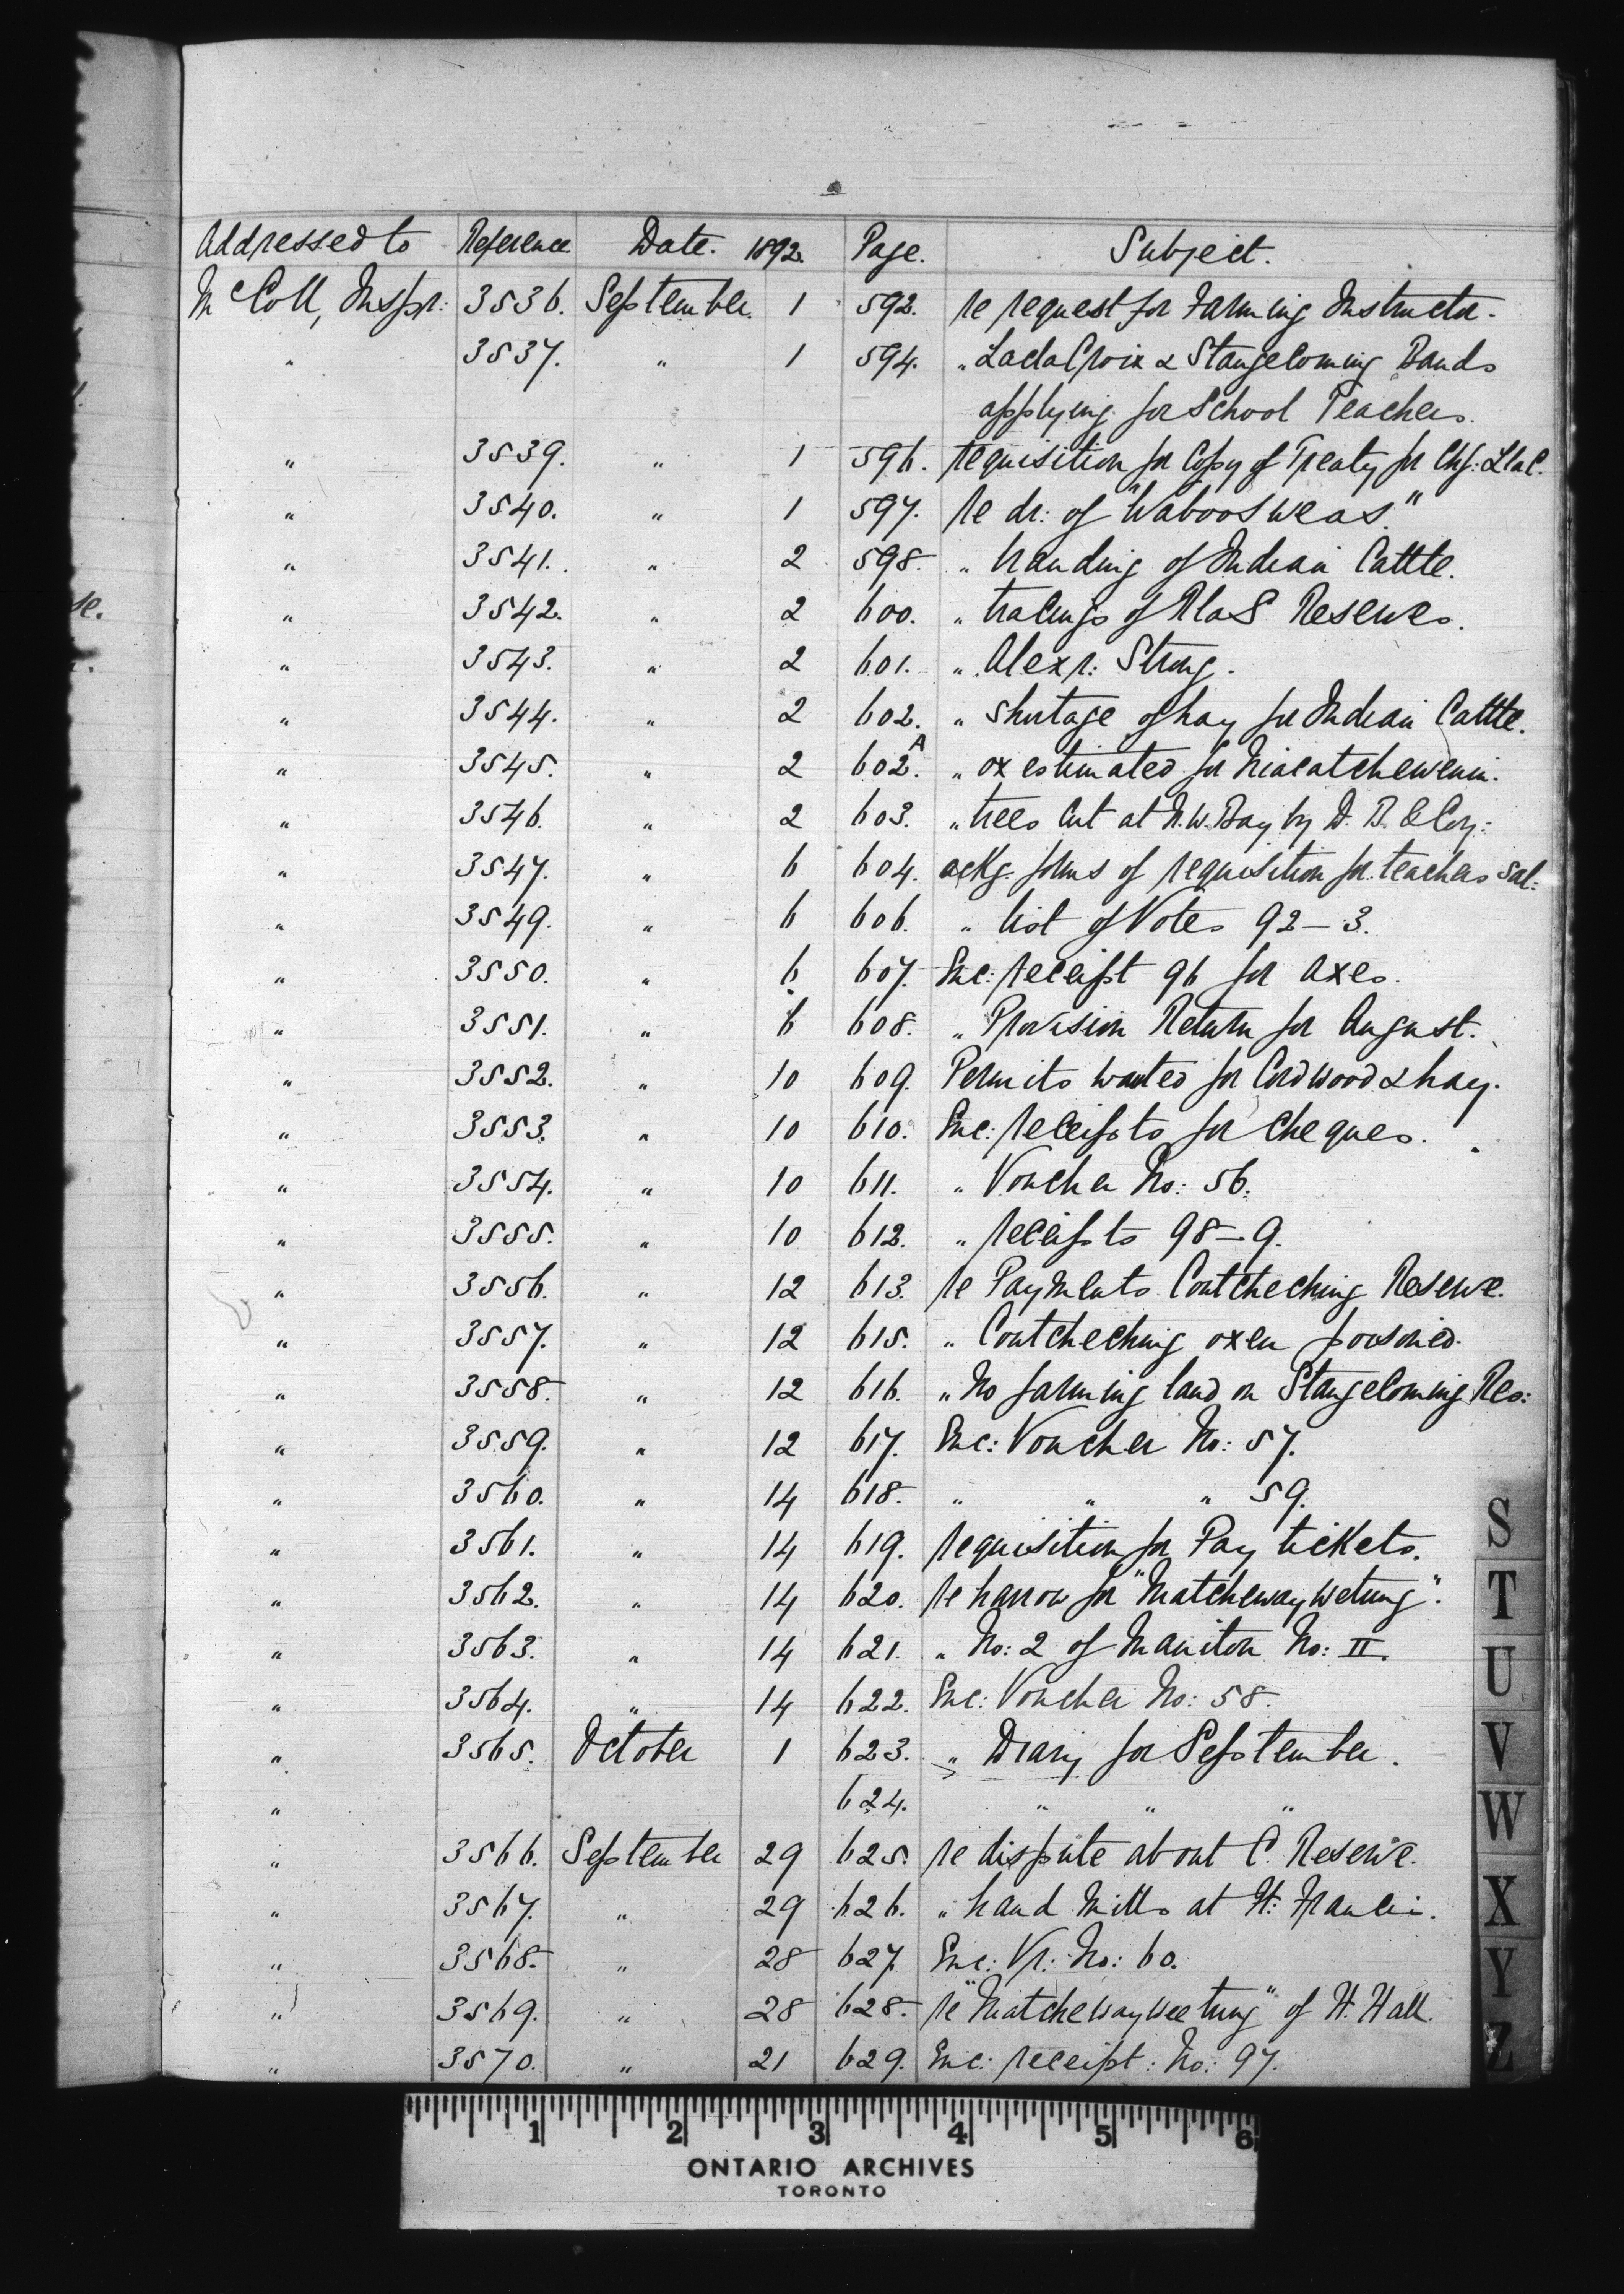 Addressed to Reference Date. 1892. Page. Subject.
McColl, Inspr: 3536. September. 1 592. re request for Farming Instructor.
" 3537. " 1 594. " LacdaCroix & Stangecoming Bands
applying for School Teachers.
" 3539. " 1 596. requisition for Copy of Treaty for Chf: LlaC.
" 3540. " 1 597. re dr: of "Waboosweas."
" 3541. " 2 598. " branding of Indian Cattle.
" 3542. " 2 600. " tracings of RlaS Reserves.
" 3543. " 2 601. " Alexr: Strong.
" 3544. " 2 602. " shortage of hay for Indian Cattle.
" 3545. " 2 602.A " ox estimated for Niacatchewenin.
" 3546. " 2 603. " trees cut at N.W. Bay by D. B. & Coy:
" 3547. " 6 604. ackg. forms of requisition for teachers sal:
" 3549. " 6 606. " list of Votes 92-3.
" 3550. " 6 607. Enc: receipt 96 for axes.
" 3551. " 6 608. " Provision Return for August.
" 3552. " 10 609. Permits wanted for Cordwood & hay.
" 3553. " 10 610. Enc: receipts for Cheques.
" 3554. " 10 611. " Voucher No: 56.
" 3555. " 10 612. " receipts 98-9.
" 3556. " 12 613. re Payments Coutcheching Reserve.
" 3557. " 12 615. " Coutcheching oxen poisoned.
" 3558. " 12 616. " No farming land on Stangecoming Res:
" 3559. " 12 617. Enc: Voucher No: 57.
" 3560. " 14 618. " " " 59.
" 3561. " 14 619. requisition for Pay tickets.
" 3562. " 14 620. re harrow for "Matchewaywetung".
" 3563. " 14 621. " No: 2 of Maniton No: II.
" 3564. " 14 622. Enc: Voucher No: 58.
" 3565. October 1 623. " Diary for September.
" 624. " " "
" 3566. September 29 625. re dispute about C. Reserve.
" 3567. " 29 626. " hand Mills at Ft: Francis.
" 3568. " 28 627. Enc: Vr: No: 60.
" 3569. " 28 628. re "Matchewayweetung" of W. Hall.
" 3570. " 21 629. Enc: receipt: No: 97.
S
T
U
V
W
X
Y
Z
1 2 3 4 5 6
ONTARIO ARCHIVES
TORONTO